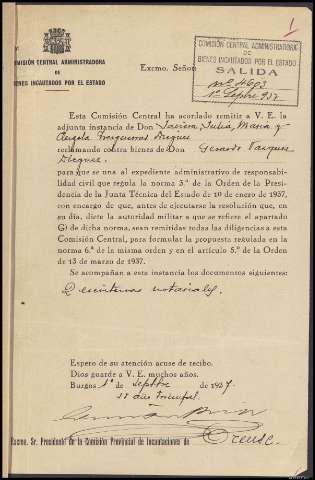 1
COMISIÓN CENTRAL ADMINISTRADORA
DE
BIENES INCAUTADOS POR EL ESTADO
COMISIÓN CENTRAL ADMINISTRADORA
DE
BIENES INCAUTADOS POR EL ESTADO
SALIDA
nº 4693
1º Septbre 937.
Excmo. Señor
Esta Comisión Central ha acordado remitir a V. E. la
adjunta instancia de Don Julia, Maria y
Angela
reclamando contra bienes de Don Gerardo Vazquez
para que se una al expediente administrativo de responsabi-
lidad civil que regula la norma 3.ª de la Orden de la Presi-
dencia de la Junta Técnica del Estado de 10 de enero de 1937,
con encargo de que, antes de ejecutarse la resolución que, en
su día, dicte la autoridad militar a que se refiere el apartado
G) de dicha norma, sean remitidas todas las diligencias a esta
Comisión Central, para formular la propuesta regulada en la
norma 6.ª de la misma orden y en el artículo 5.º de la Orden
de 13 de marzo de 1937.
Se acompañan a esta instancia los documentos siguientes:
2 escrituras notariales.
Espero de su atención acuse de recibo.
Dios guarde a V. E. muchos años.
Burgos 1º de Septbre de 1937
II año Triunfal
Excmo. Sr. Presidente de la Comisión Provincial de Incautaciones de Orense.